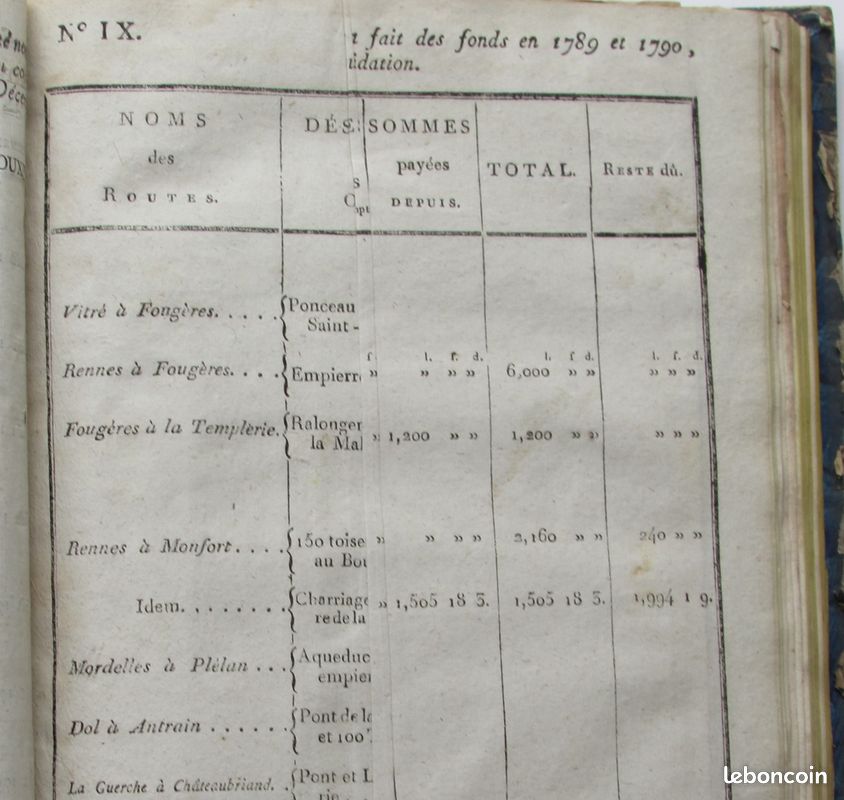 N° IX.
fait des fonds en 1789 et 1790,
idation.
NOMS des ROUTES.
DÉS
SOMMES payées DEPUIS.
TOTAL.
RESTE dû.
Vitré à Fougères. . . . . Ponceau
Saint-
l. f. d. l. f. d. l. f. d.
Rennes à Fougères. . . . Empierr » » » » 6,000 » » » » »
Fougères à la Templerie. Ralonger
la Mal » 1,200 » » 1,200 » » » » »
Rennes à Monfort. . . . 150 toise » » » » 2,160 » » 240 » »
au Bou
Idem. . . . . . . . Charriage » 1,505 18 3. 1,505 18 3. 1,994 1 9.
re de la
Mordelles à Plélan . . . Aqueduc
empier
Dol à Antrain . . . . . . Pont de la
et 100
La Guerche à Châteaubriand. . Pont et L
rie.
leboncoin